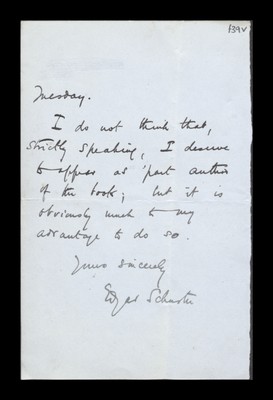 139v
Tuesday.
I do not think that,
strictly speaking, I deserve
to appear as 'part author
of the book; but it is
obviously much to my
advantage to do so.
Yours sincerely
Edgar Schuster